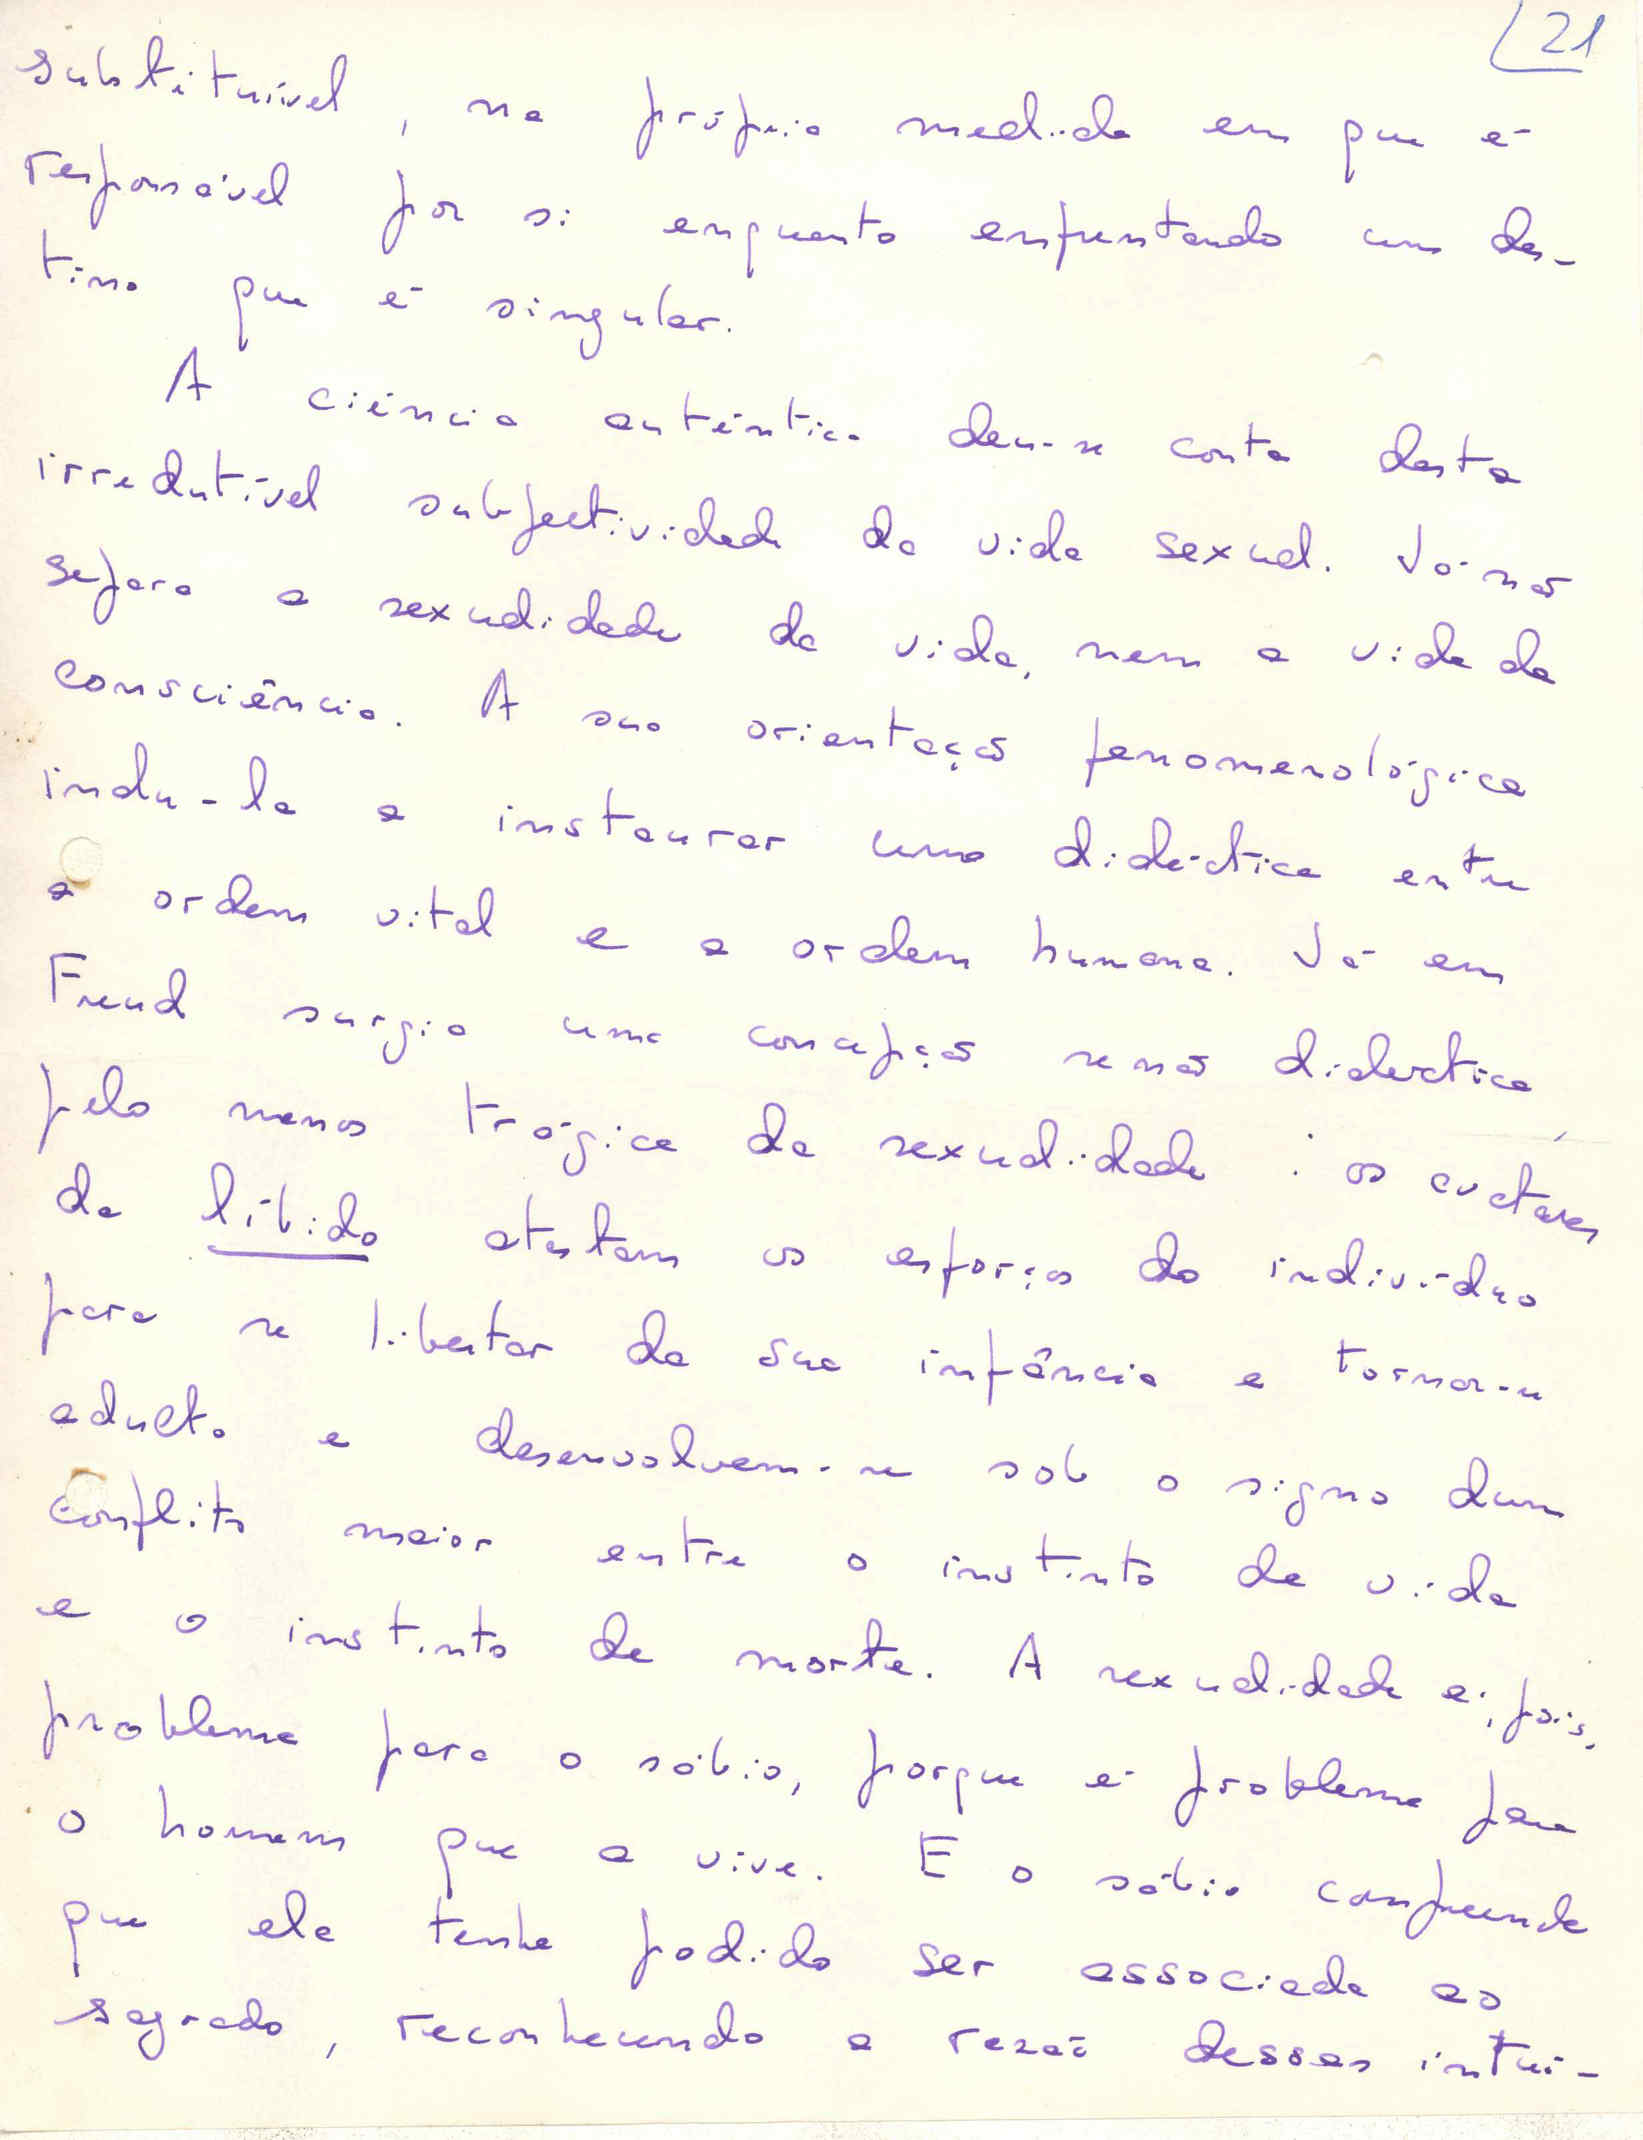 21
substituível, na própria medida em que é
responsável por si enquanto enfrentando um des-
tino que é singular.
A ciência autêntica deu-se conta desta
irredutível subjectividade da vida sexual. Já não
separa a sexualidade da vida, nem a vida da
consciência. A sua orientação fenomenológica
indu-la a instaurar uma dialéctica entre
a ordem vital e a ordem humana. Já em
Freud surgia uma concepção se não dialéctica,
pelo menos trágica da sexualidade: os avatares
da líbido atestam os esforços do indivíduo
para se libertar da sua infância e tornar-se
adulto e desenvolvem-se sob o signo dum
conflito maior entre o instinto de vida
e o instinto de morte. A sexualidade é, pois,
problema para o sábio, porque é problema para
o homem que a vive. E o sábio compreende
que ela tenha podido ser associada ao
sagrado, reconhecendo a razão dessas intui-